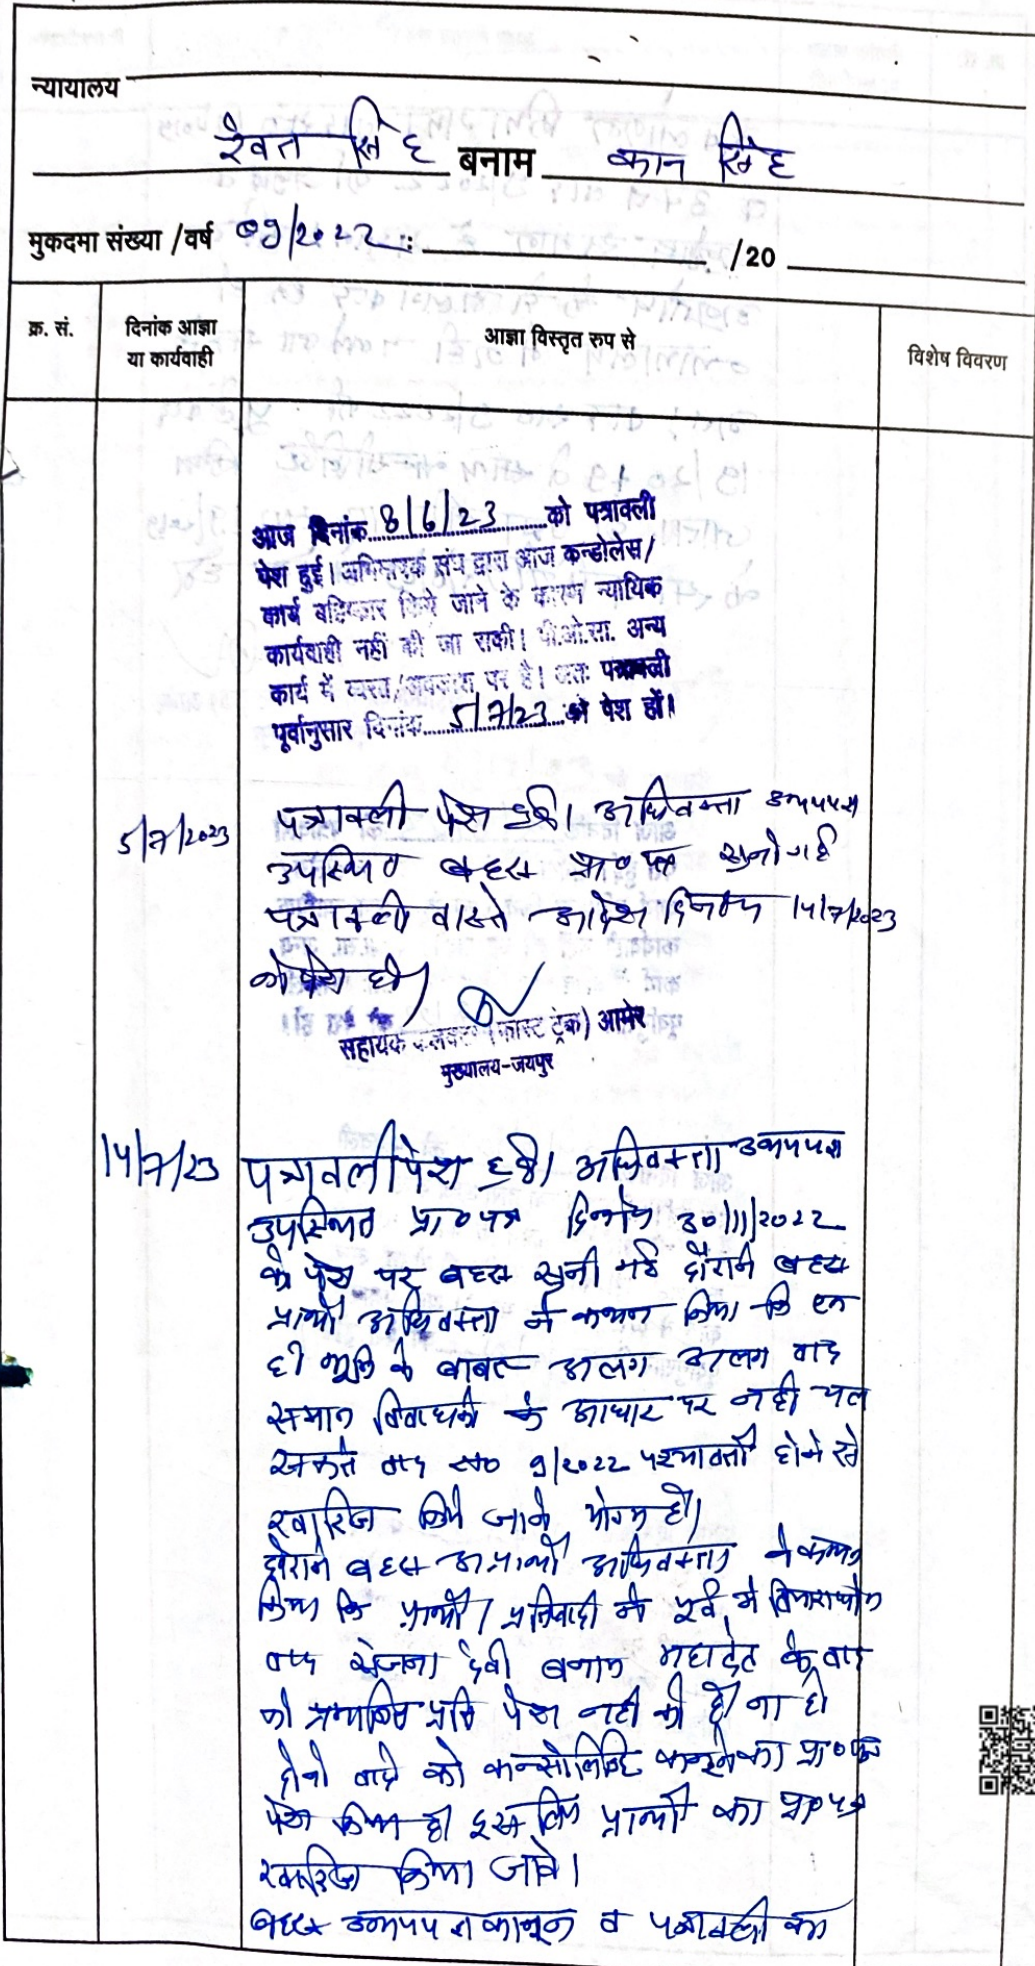 न्यायालय
रेवत सिंह बनाम कान सिंह
मुकदमा संख्या /वर्ष 09/2022 /20
क्र. सं. दिनांक आज्ञा या कार्यवाही आज्ञा विस्तृत रुप से विशेष विवरण
आज दिनांक 8/6/23 को पत्रावली
पेश हुई। अभिभाषक संघ द्वारा आज कन्डोलेस/
कार्य बहिष्कार किये जाने के कारण न्यायिक
कार्यवाही नहीं की जा सकी। पी.ओ.सा. अन्य
कार्य में व्यस्त/अवकाश पर है। अतः पत्रावली
पूर्वानुसार दिनांक 5/7/23 को पेश हों।
5/7/2023 पत्रावली पेश हुई। अधिवक्ता उभयपक्ष
उपस्थित बहस प्रा० पत्र सुनी गई
पत्रावली वास्ते आदेश दिनांक 14/7/2023
को पेश हो।
सहायक कलक्टर (फास्ट ट्रेक) आमेर
मुख्यालय-जयपुर
14/7/23 पत्रावली पेश हुई। अधिवक्ता उभयपक्ष
उपस्थित प्रा० पत्र दिनांक 30/11/2022
के पेश पर बहस सुनी गई दौराने बहस
प्रार्थी अधिवक्ता ने कथन किया कि एक
ही भूमि के बाबत अलग अलग वाद
समान के आधार पर नही चल
सकते वाद स० 9/2022 पश्चावर्ती होने से
खारिज किये जाने योग्य है।
दौराने बहस अप्रार्थी अधिवक्ता ने कथन
किया कि प्रार्थी / प्रतिवादी ने पूर्व में विचाराधीन
वाद देवी बनाम महादेव के वाद
की प्रमाणित प्रति पेश नही की है ना ही
दोनो वादो को कन्सोलिडेट करने का प्रा० पत्र
पेश किया है इस लिए प्रार्थी का प्रा० पत्र
खारिज किया जावे।
बहस उभयपक्ष कानून व पत्रावली का